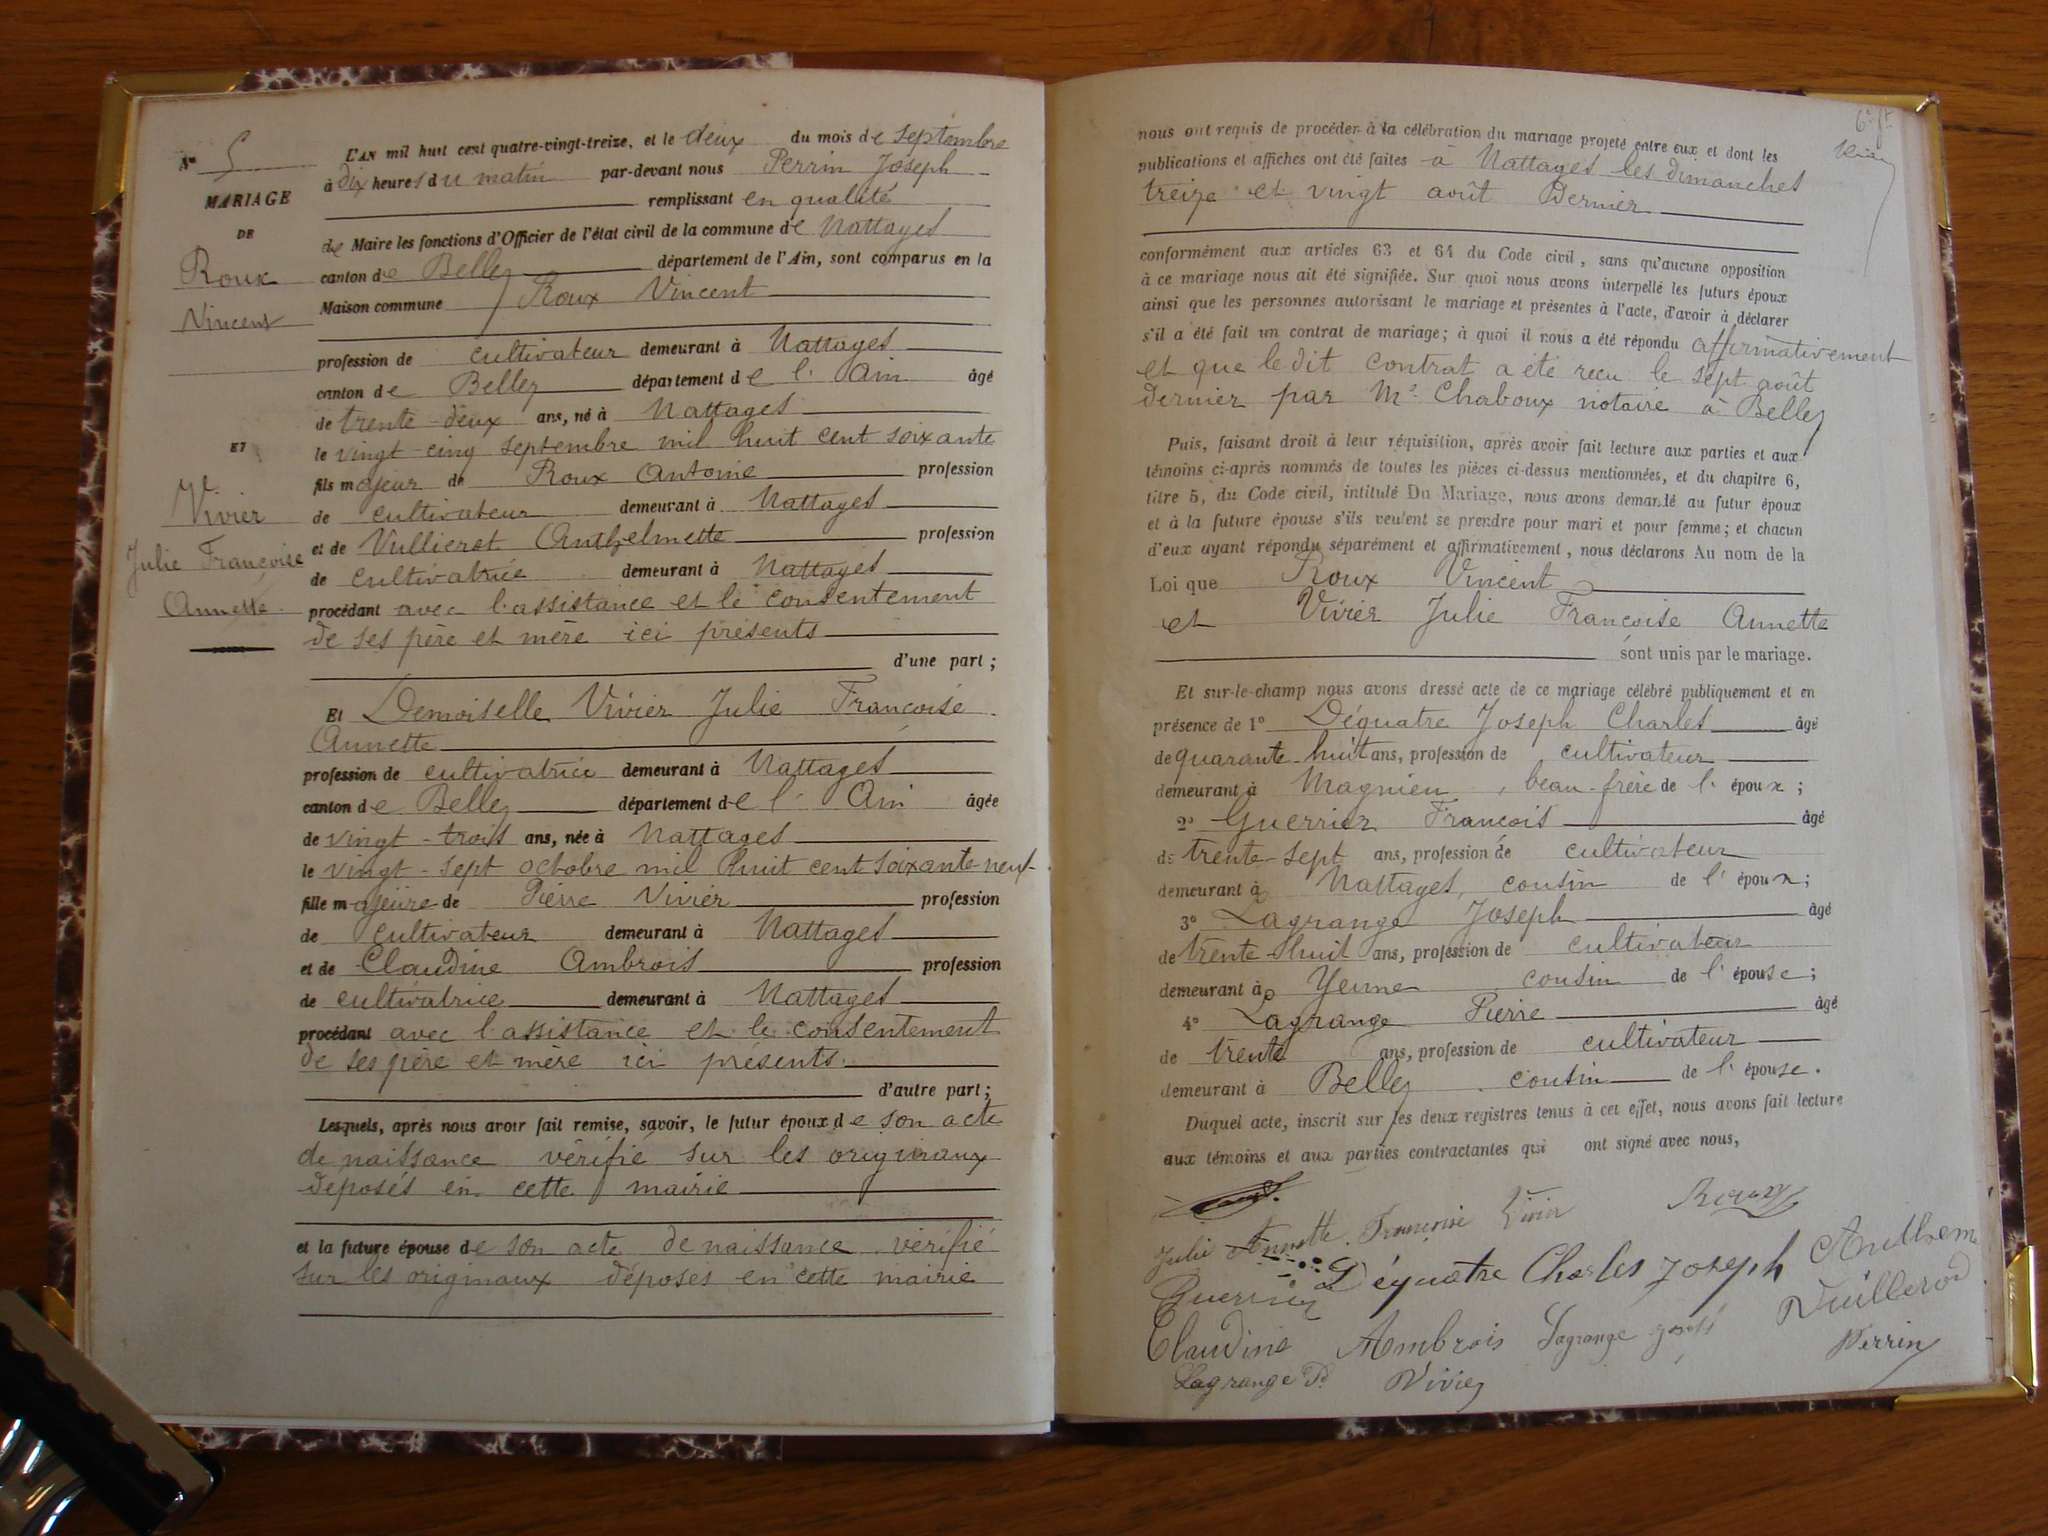 N° 5
MARIAGE
DE
Roux
Vincent
ET
Vivier
Julie Françoise
Annette
L'AN mil huit cent quatre-vingt-treize, et le deux du mois de septembre
à dix heures du matin par-devant nous Perrin Joseph
remplissant en qualité
de Maire les fonctions d'Officier de l'état civil de la commune de Nattages
canton de Belley département de l'Ain, sont comparus en la
Maison commune Roux Vincent
profession de cultivateur demeurant à Nattages
canton de Belley département de l'Ain âgé
de trente-deux ans, né à Nattages
le vingt-cinq septembre mil huit cent soixante
fils majeur de Roux Antoine profession
de cultivateur demeurant à Nattages
et de Vullierot Anthelmette profession
de cultivatrice demeurant à Nattages
procédant avec l'assistance et le consentement
de ses père et mère ici présents
d'une part ;
Et Demoiselle Vivier Julie Françoise
Annette
profession de cultivatrice demeurant à Nattages
canton de Belley département de l'Ain âgée
de vingt-trois ans, née à Nattages
le vingt-sept octobre mil huit cent soixante-neuf
fille majeure de Pierre Vivier profession
de cultivateur demeurant à Nattages
et de Claudine Ambrois profession
de cultivatrice demeurant à Nattages
procédant avec l'assistance et le consentement
de ses père et mère ici présents.
d'autre part ;
Lesquels, après nous avoir fait remise, savoir, le futur époux de son acte
de naissance vérifié sur les originaux
déposés en cette mairie
et la future épouse de son acte de naissance vérifié
sur les originaux déposés en cette mairie
nous ont requis de procéder à la célébration du mariage projeté entre eux et dont les
publications et affiches ont été faites à Nattages les dimanches
treize et vingt août dernier
conformément aux articles 63 et 64 du Code civil, sans qu'aucune opposition
à ce mariage nous ait été signifiée. Sur quoi nous avons interpellé les futurs époux
ainsi que les personnes autorisant le mariage et présentes à l'acte, d'avoir à déclarer
s'il a été fait un contrat de mariage; à quoi il nous a été répondu affirmativement
et que le dit contrat a été reçu le sept août
dernier par Me Chaboux notaire à Belley
Puis, faisant droit à leur réquisition, après avoir fait lecture aux parties et aux
témoins ci-après nommés de toutes les pièces ci-dessus mentionnées, et du chapitre 6,
titre 5, du Code civil, intitulé Du Mariage, nous avons demandé au futur époux
et à la future épouse s'ils veulent se prendre pour mari et pour femme; et chacun
d'eux ayant répondu séparément et affirmativement, nous déclarons Au nom de la
Loi que Roux Vincent
et Vivier Julie Françoise Annette
sont unis par le mariage.
Et sur-le-champ nous avons dressé acte de ce mariage célébré publiquement et en
présence de 1° Déquatre Joseph Charles âgé
de quarante-huit ans, profession de cultivateur
demeurant à Magnieu, beau-frère de l'époux ;
2° Guerrier François âgé
de trente-sept ans, profession de cultivateur
demeurant à Nattages, cousin de l'époux ;
3° Lagrange Joseph âgé
de trente-huit ans, profession de cultivateur
demeurant à Yenne cousin de l'épouse ;
4° Lagrange Pierre âgé
de trente ans, profession de cultivateur
demeurant à Belley cousin de l'épouse.
Duquel acte, inscrit sur les deux registres tenus à cet effet, nous avons fait lecture
aux témoins et aux parties contractantes qui ont signé avec nous,
Julie Annette Françoise Vivier
Déquatre Charles Joseph Anthem
Guerrier Vuillerod
Claudine Ambrois Lagrange Joseph Perrin
Lagrange P. Vivier